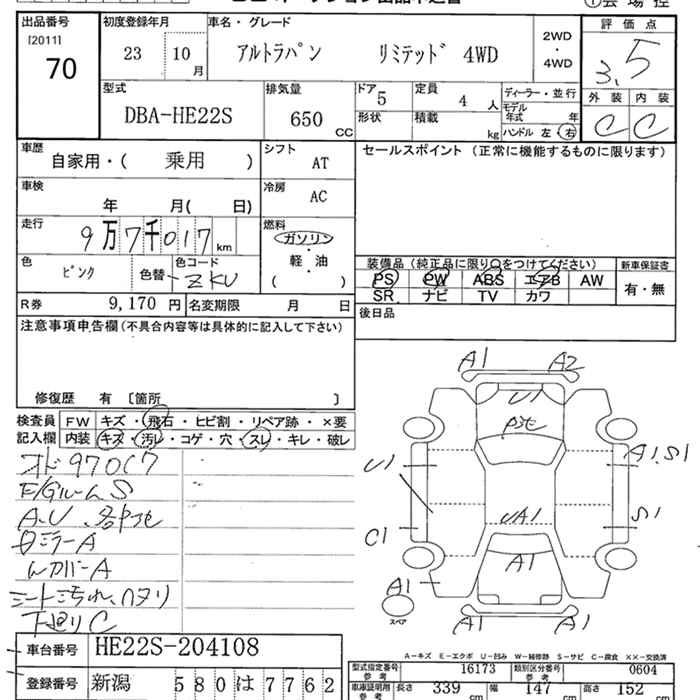 出品番号 [2011] 70
初度登録年月 23 10 月
車名・グレード アルトラパン リミテッド 4WD
2WD ・ 4WD
評価点 3.5
外装 内装 C C
型式 DBA-HE22S
排気量 650 CC
ドア 5
形状
定員 4 人
積載 kg
ディーラー・並行
モデル年式 年
ハンドル 左・右
車歴 自家用・( 乗用 )
シフト AT
セールスポイント (正常に機能するものに限ります)
車検 年 月( 日)
冷房 AC
走行 9万7千017 km
燃料 ガソリン 軽・油 ( )
色 ピンク 色替 色コード ZKU
装備品(純正品に限り○をつけてください) 新車保証書
PS PW ABS エアB AW 有・無
SR ナビ TV カワ
R券 9,170 円 名変期限 月 日
後日品
注意事項申告欄(不具合内容等は具体的に記入して下さい)
修復歴 有 〔箇所 〕
検査員 FW キズ・飛石・ヒビ割・リペア跡・×要
記入欄 内装 キズ・汚レ・コゲ・穴・スレ・キレ・破レ
E/Gルーム S
A.U
ミラーA
カバーA
シート汚れ、ハヌリ
下廻りC
A1 A2
U1
U1
A1.S1
C1
UA1
S1
A1
A1
スペア
A1 A1
A-キズ E-エクボ U-凹み W-補修跡 S-サビ C-腐食 ××-交換済
車台番号 HE22S-204108
登録番号 新潟 580 は 7762
型式指定番号 参考 16173 類別区分番号 参考 0604
車庫証明用 参考 長さ 339 幅 147 高さ 152